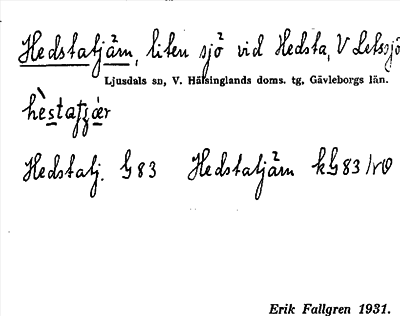 Hedstatjärn, liten sjö vid Hedsta, V Letssjö
Ljusdals sn, V. Hälsinglands doms. tg, Gävleborgs län.
Hedstatj. G83 Hedstatjärn kG83
Erik Fallgren 1931.